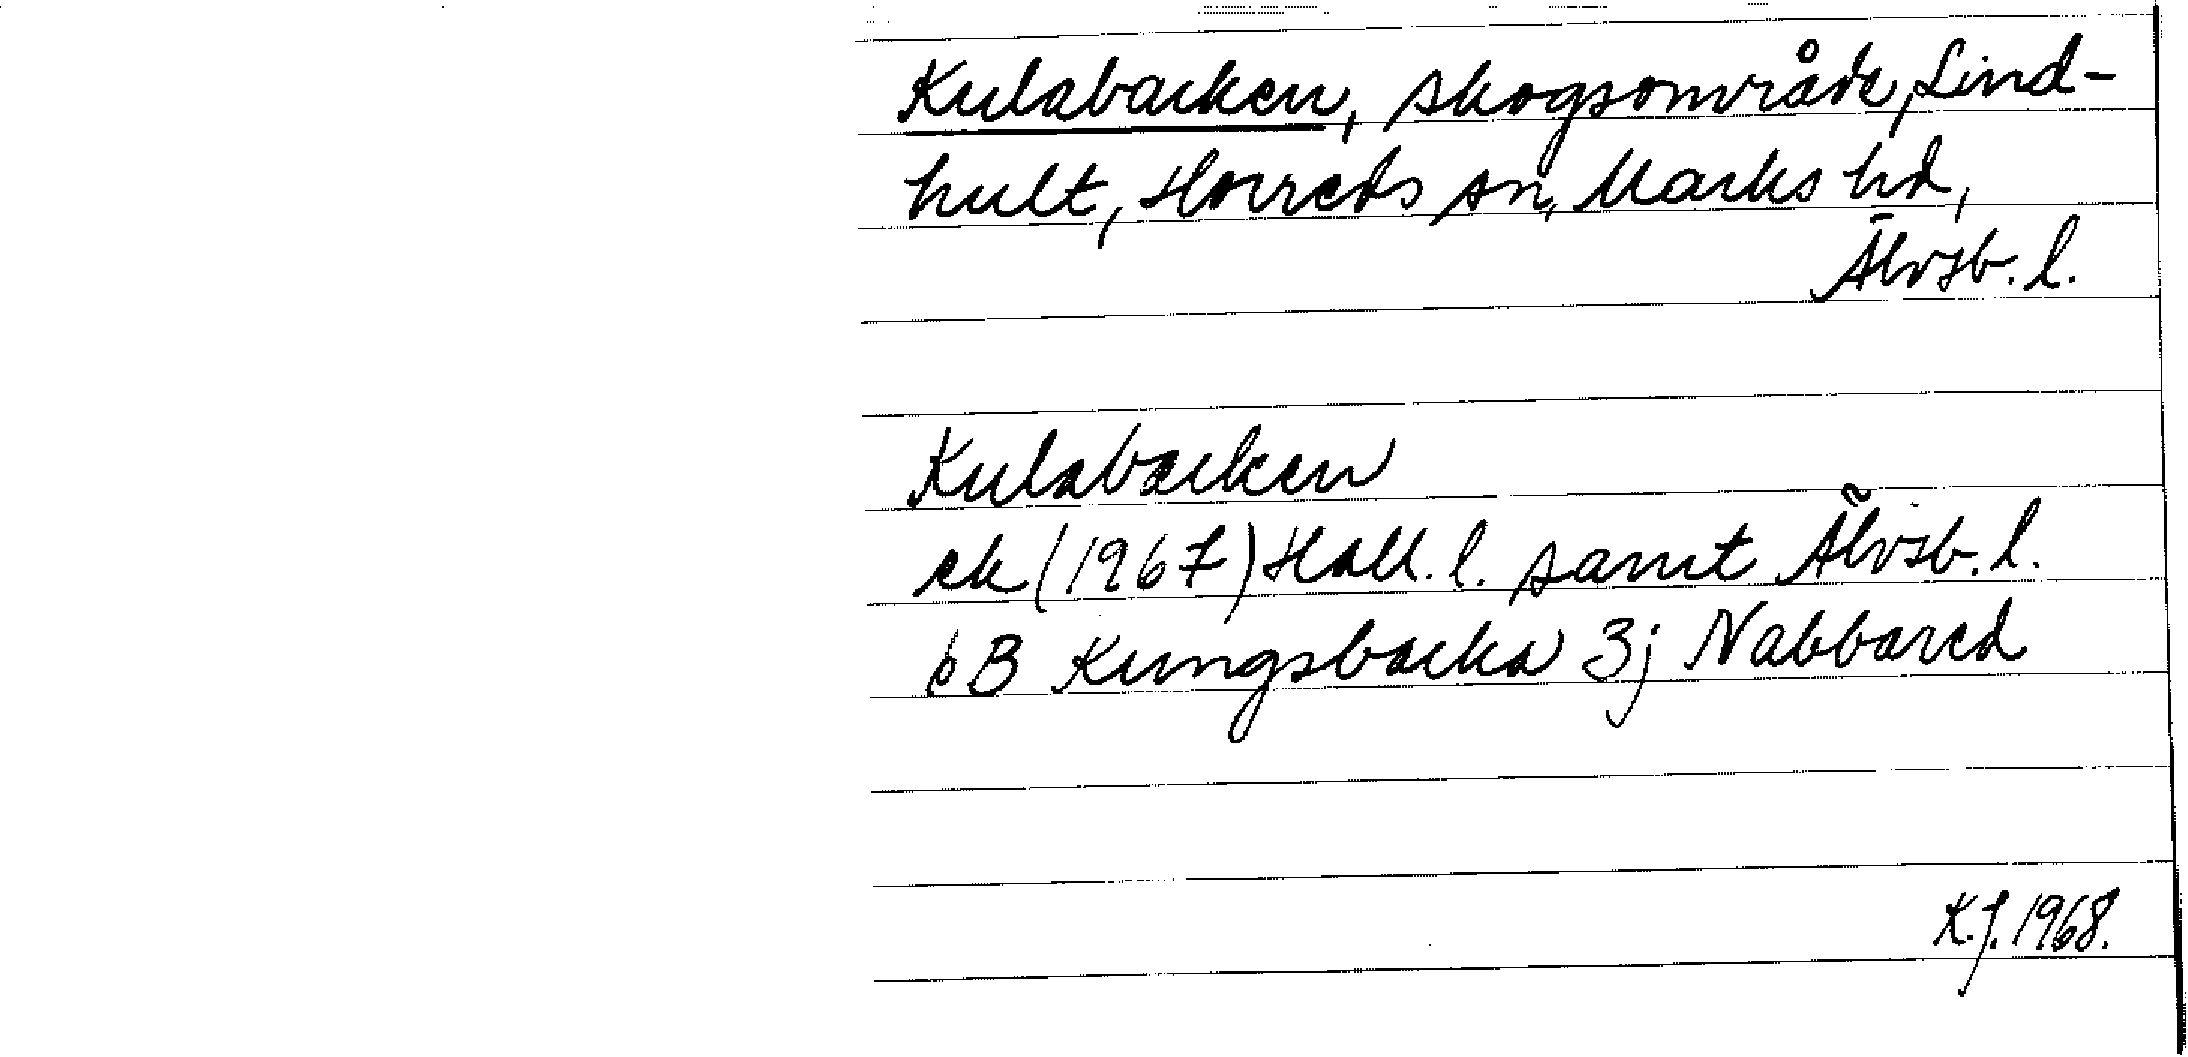 Kulabacken, skogsområde, Lind-
hult, Horreds sn, Marks hd,
Älvsb. l.
Kulabacken
ek (1967) Hall. l. samt Älvsb. l.
6B Kungsbacka 3j Nabbared
K.J. 1968.